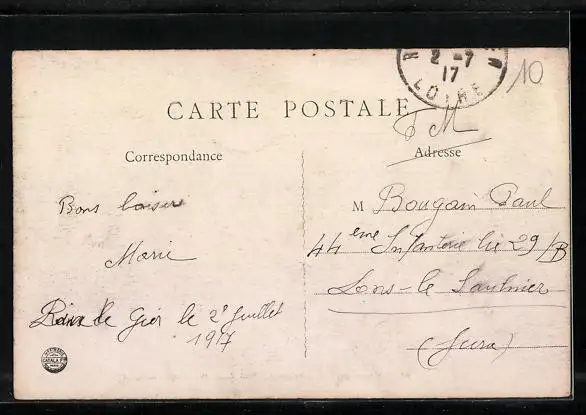 2-7
17
LOIRE
10
CARTE POSTALE
F M
Correspondance
Adresse
Bons baisers
Marie
M Bougain Paul
44ème Infanterie Cie 29/B
Lons-le Saulnier
(Jura)
Rive de Gier le 2 Juillet
1917